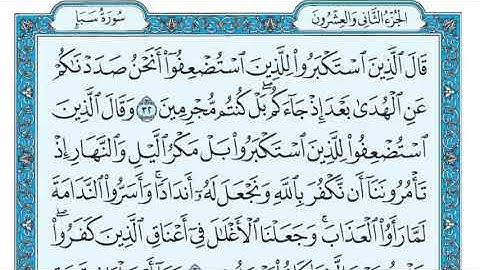 سُورَةُ سَبَإٍ
الجُزْءُ الثَّانِى وَالعِشْرُونَ
قَالَ ٱلَّذِينَ ٱسْتَكْبَرُوا۟ لِلَّذِينَ ٱسْتُضْعِفُوٓا۟ أَنَحْنُ صَدَدْنَٰكُمْ
عَنِ ٱلْهُدَىٰ بَعْدَ إِذْ جَآءَكُم ۖ بَلْ كُنتُم مُّجْرِمِينَ ٣٢ وَقَالَ ٱلَّذِينَ
ٱسْتُضْعِفُوا۟ لِلَّذِينَ ٱسْتَكْبَرُوا۟ بَلْ مَكْرُ ٱلَّيْلِ وَٱلنَّهَارِ إِذْ
تَأْمُرُونَنَآ أَن نَّكْفُرَ بِٱللَّهِ وَنَجْعَلَ لَهُۥٓ أَندَادًا ۚ وَأَسَرُّوا۟ ٱلنَّدَامَةَ
لَمَّا رَأَوُا۟ ٱلْعَذَابَ ۚ وَجَعَلْنَا ٱلْأَغْلَٰلَ فِىٓ أَعْنَاقِ ٱلَّذِينَ كَفَرُوا۟ ۖ